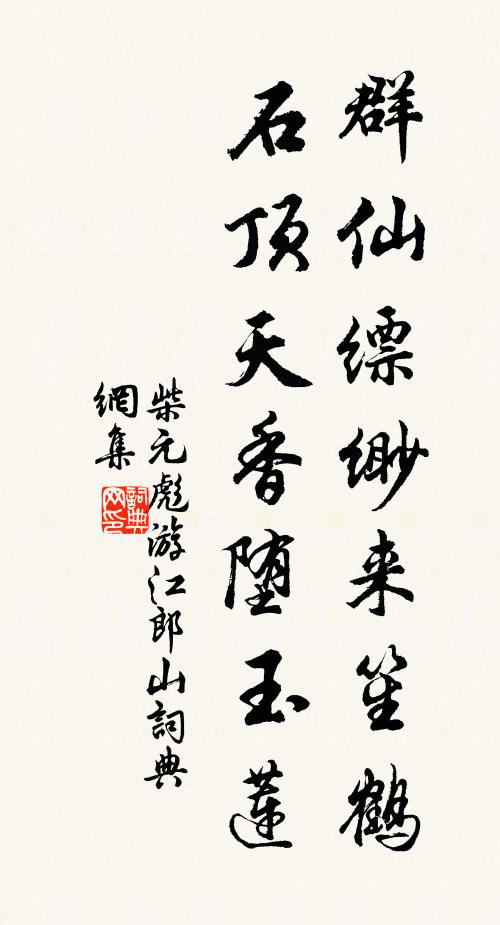 群仙缥缈来笙鹤
石顶天香堕玉莲
柴元彪游江郎山詞典
網集
詞典
网印